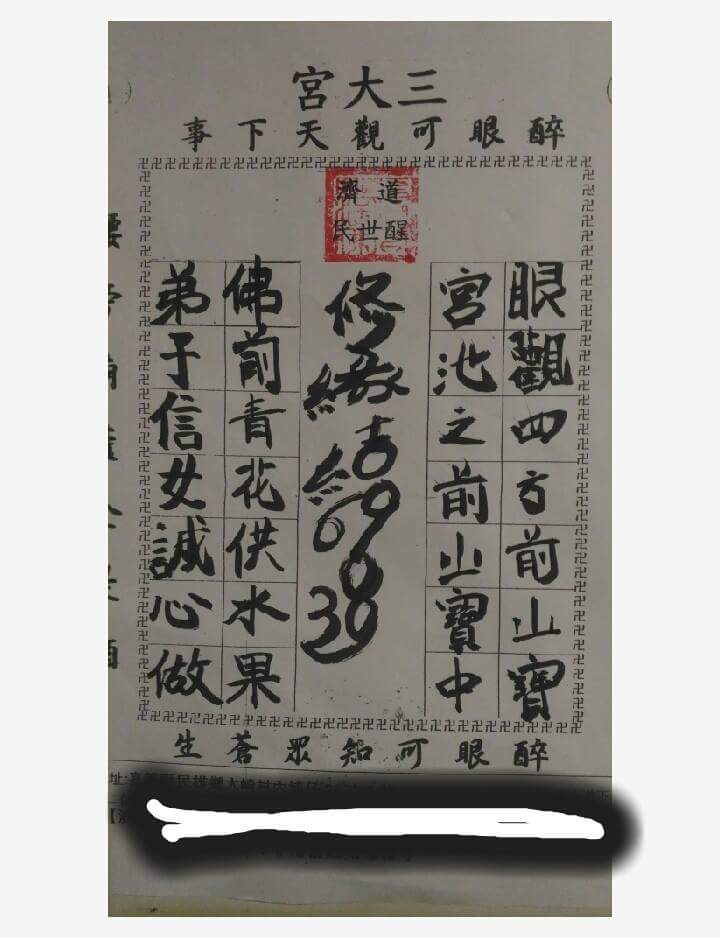 三大宮
醉眼可觀天下事
道濟
醒世民
眼觀四方前山寶
宮池之前山寶中
修緣
39
佛前青花供水果
弟子信女誠心做
醉眼可知眾蒼生